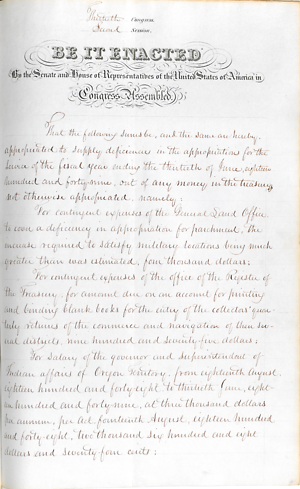 Thirtieth Congress
Second Session
BE IT ENACTED
By the Senate and House of Representatives of the United States of America in
Congress Assembled
That the following sums be, and the same are hereby,
appropriated to supply deficiencies in the appropriations for the
service of the fiscal year ending the thirtieth of June, eighteen
hundred and forty-nine, out of any money in the treasury
not otherwise appropriated, namely:
For contingent expenses of the General Land Office
to cover a deficiency in appropriation for parchment, the
increase required to satisfy military locations being much
greater than was estimated, four thousand dollars:
For contingent expenses of the office of the Register of
the Treasury, for amount due on an account for printing
and binding blank books for the entry of the collectors' quar-
terly returns of the commerce and navigation of their se-
veral districts, nine hundred and seventy-five dollars;
For salary of the governor and superintendent of
Indian affairs of Oregon territory, from eighteenth August,
eighteen hundred and forty-eight, to thirtieth June, eight-
een hundred and forty-nine, at three thousand dollars
per annum, per act fourteenth August, eighteen hundred
and forty eight, two thousand six hundred and eight
dollars and seventy-four cents: